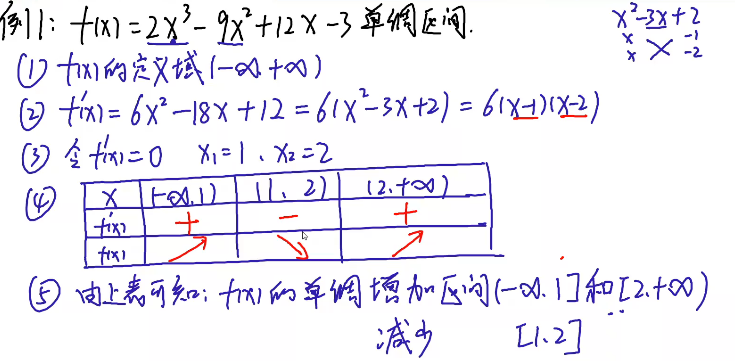 例11: f(x)=2x³-9x²+12x-3 单调区间.
x²-3x+2
x -1
x -2
① f(x)的定义域(-∞.+∞)
② f'(x)=6x²-18x+12=6(x²-3x+2)=6(x-1)(x-2)
③ 令f'(x)=0 x₁=1、x₂=2
④ x (-∞.1) (1、2) (2.+∞)
f'(x) + - +
f(x) ↗ ↘ ↗
⑤ 由上表可知: f(x)的单调增加区间(-∞.1]和[2.+∞)
减少 [1.2]